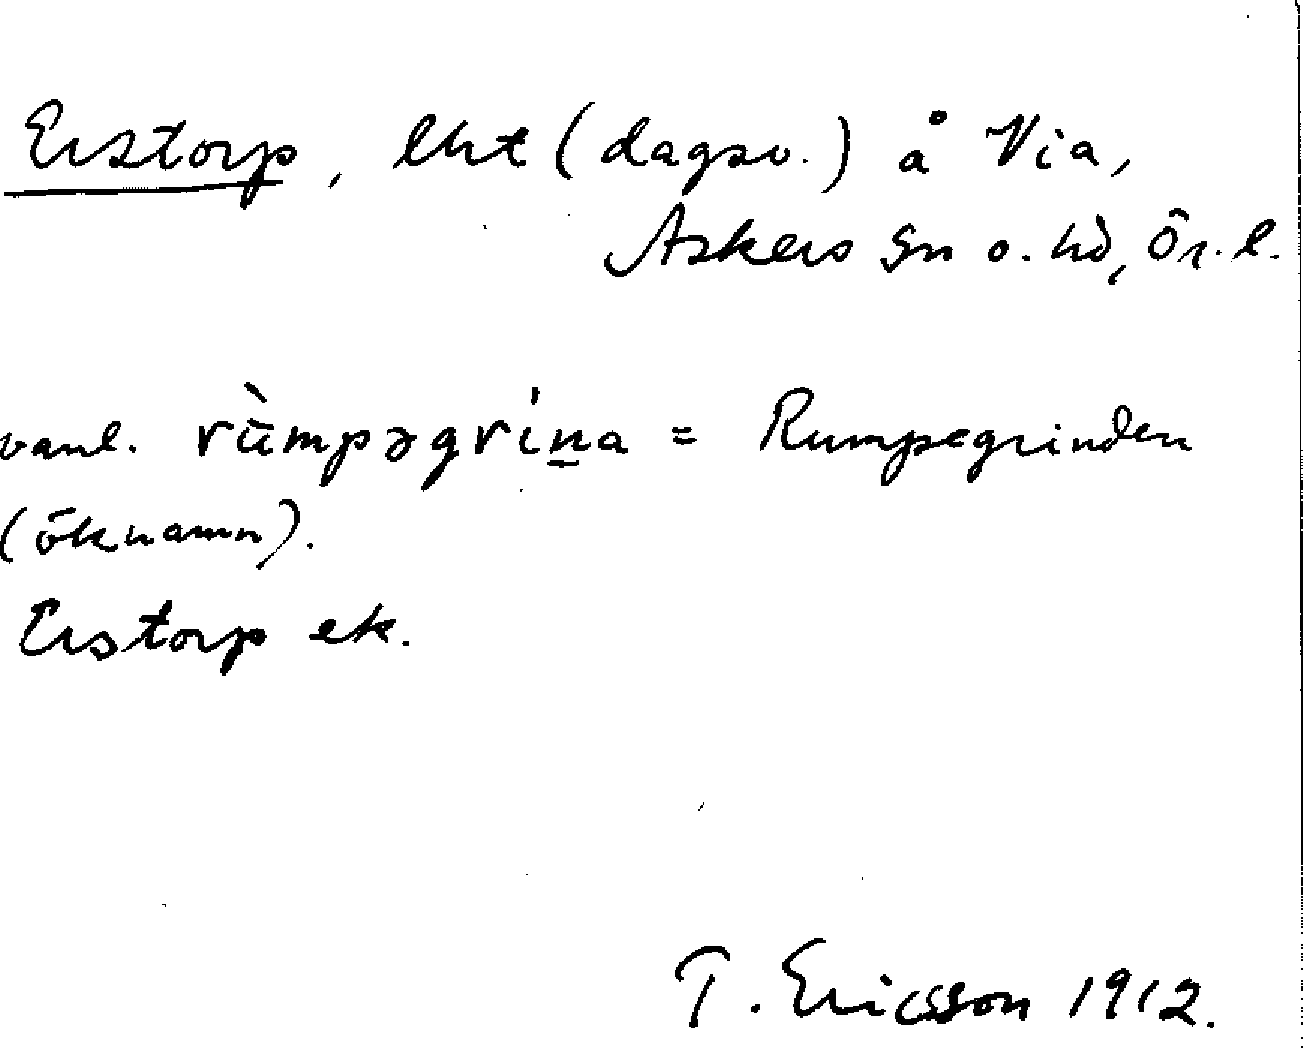 Erstorp, lht (dagsv.) å Via,
Askers sn o. hd, Ör. l.
vanl. rùmpəgrína = Rumpegrinden
(öknamn).
Erstorp ek.
T. Ericsson 1912.